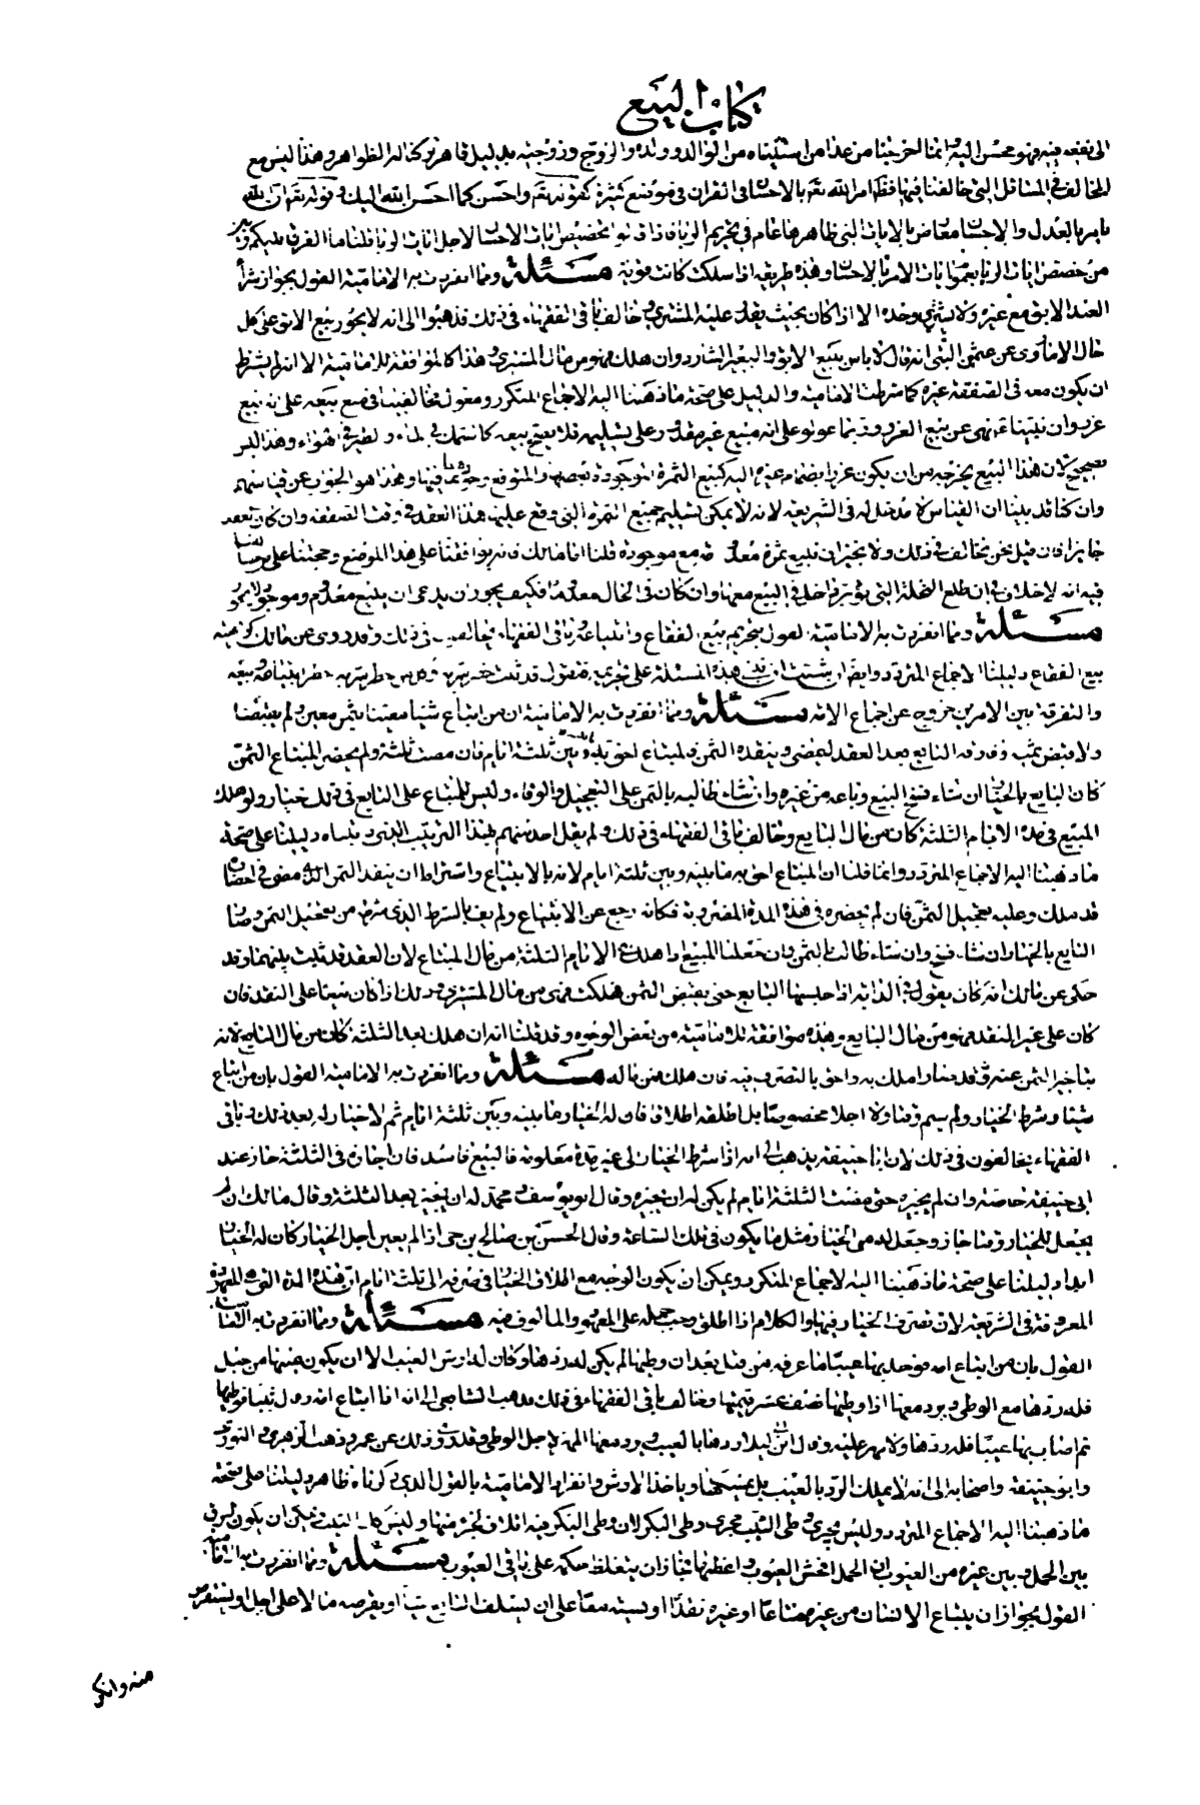 كتاب البيع
الى نفعه فيه فهو محسن اليه انما اخرجنا من هذا من استثناه من الوالد وولده والزوج وزوجته بدليل قاهر تركنا له الظواهر وهذا ليس مع
المخالف في المسائل التي خالفنا فيها فظ امر الله تعالى بالاحسان في القران في موضع كثيرة كقوله تعالى واحسن كما احسن الله اليك وقوله تعالى ان الله
يامر بالعدل والاحسان معارض بالايات التي ظاهرها عام في تحريم الربا فاذا قلتم نخصص ايات الاحسان لاجل ايات الربا قلنا ما الفرق بينكم وبين
من خصص ايات الربا بعموم ايات الامر بالاحسان وهذه طريقة اذا سلكت كانت قوية مسئلة ومما انفردت به الامامية القول بجواز شرا
العبد الابق مع غيره ولا يشترى وحده الا اذا كان بحيث يقدر عليه المشترى وخالف باقي الفقهاء في ذلك فذهبوا الى انه لا يجوز بيع الابق على كل
حال الا ما روى عن عثمن البتي انه قال لا باس ببيع الابق والبعير الشارد وان هلك فهو من مال المشترى وهذا كالموافقة للامامية الا انه لم يشترط
ان يكون معه في الصفقة غيره كما شرطت الامامية والدليل على صحة ما ذهبنا اليه الاجماع المتكرر ومعول مخالفينا في منع بيعه على انه بيع
غرر وان نبينا ع نهى عن بيع الغرر وربما عولوا على انه مبيع غير مقدور على تسليمه فلا يصح بيعه كالسمك في الماء والطير في الهواء وهذا ليس
بصحيح لان هذا البيع يخرجه من ان يكون غررا انضمام غيره اليه كبيع الثمرة الموجودة بعضها والمتوقع وجود باقيها وهذا هو الجواب عن قياسهم
وان كنا قد بينا ان القياس لا مدخل له في الشريعة لانه لا يمكن تسليم جميع الثمرة التي وقع عليها هذا العقد في وقت الصفقة وان كان العقد
جايزا فان قيل نحن نخالف في ذلك ولا نجيز ان نبيع ثمرة معدومة مع موجودة قلنا اما مالك فانه يوافقنا على هذا الموضع وحجتنا على من خالفنا
فيه انه لا خلاف في ان طلع النخلة التي لم يؤبر داخل في البيع معها وان كان في الحال معدوما فكيف يجوز ان يدعى ان بيع معدوم وموجود لا يجوز
مسئلة ومما انفردت به الامامية القول بتحريم بيع الفقاع وابتياعه وباقي الفقهاء يخالف في ذلك وقد روى عن مالك كراهية
بيع الفقاع دليلنا الاجماع المتردد وايضا ان شئت ان تبني هذه المسئلة على تحريمه فنقول قد ثبت حظر شربه وكل من حظر شربه حظر ابتياعه وبيعه
والتفرقة بين الامرين خروج عن اجماع الامة مسئلة ومما انفردت به الامامية ان من ابتاع شيئا معينا بثمن معين ولم يقبضه
ولا قبض ثمنه وفارقه البايع بعد العقد ليمضى وينقده الثمن فالمبتاع احق به ما بينه وبين ثلثة ايام فان مضت ثلثة ولم يحضر المبتاع الثمن
كان البايع بالخيار ان شاء فسخ البيع وباعه من غيره وان شاء طالبه بالثمن على التعجيل والوفاء وليس للمبتاع على البايع في ذلك خيار ولو هلك
المبيع في مدة الايام الثلثة كان من مال البايع وخالف باقي الفقهاء في ذلك ولم يقل احد منهم بهذا الترتيب الذي رتبناه دليلنا على صحة
ما ذهبنا اليه الاجماع المتردد وانما قلنا ان المبتاع احق به ما بينه وبين ثلثة ايام لانه بالابتياع واشتراط ان ينقد الثمن الذي مضى في احضاره
قد ملك وعليه تعجيل الثمن فان لم يحضره في هذه المدة المضروبة فكانه رجع عن الابتياع ولم يف بالشرط الذي شرط من تعجيل الثمن وصار
البايع بالخيار ان شاء فسخ وان شاء طالب بالثمن وان جعلنا المبيع اذا هلك في الايام الثلثة من مال المبتاع لان العقد قد ثبت بينهما وقد
حكى عن مالك انه كان يقول في الدابة اذا حبسها البايع حتى يقبض الثمن فهلكت فهى من مال المشترى وذلك اذا كان بيعا على النقد فان
كان على غير النقد فهو من مال البايع وهذه موافقة للامامية من بعض الوجوه وقد قلنا انه ان هلك بعد الثلثة كان من مال البايع لانه
بتاخير الثمن عنه قد صار املك به واحق بالتصرف فيه فان هلك فمن ماله مسئلة ومما انفردت به الامامية القول بان من ابتاع
شيئا وشرط الخيار ولم يسم وقتا ولا اجلا مخصوصا بل اطلقه اطلاقا فان له الخيار ما بينه وبين ثلثة ايام ثم لا خيار له بعد ذلك وباقي
الفقهاء يخالفون في ذلك لان ابا حنيفة يذهب الى انه اذا شرط الخيار الى غير مدة معلومة فالبيع فاسد فان اجازه في الثلثة جاز عند
ابى حنيفة خاصة وان لم يجزه حتى مضت الثلثة ايام لم يكن له ان يجيزه وقال ابو يوسف ومحمد له ان يجيزه بعد الثلثة وقال مالك ان لم
يجعل للخيار وقتا جاز وجعل له من الخيار مثل ما يكون في تلك الساعة وقال الحسن بن صالح بن حى اذا لم يعين اجل الخيار كان له الخيار
ابدا دليلنا على صحة ما ذهبنا اليه الاجماع المتكرر ويمكن ان يكون الوجه مع اطلاق الخيار في صرفه الى ثلثة ايام ان هذه المدة هى المعهودة
المعروفة في الشريعة لان تصرف الخيار فيها والكلام اذا اطلق وجب حمله على المعهود والمالوف فيه مسئلة ومما انفردت به الامامية
القول بان من ابتاع امة فوجد بها عيبا ما عرفه من قبل بعد ان وطئها لم يكن له ردها وكان له ارش العيب الا ان يكون عيبها من حبل
فله ردها مع الوطى ويرد معها اذا وطئها نصف عشر قيمتها وخالف باقي الفقهاء في ذلك فذهب الشافعى الى انه اذا ابتاع امة ولا ثيبا فوطئها
ثم اصاب بها عيبا فله ردها ولا مهر عليه وقال ابن ابى ليلى يردها بالعيب ويرد معها المهر لاجل الوطى وقد روى ذلك عن عمر وذهب الزهرى والثورى
وابو حنيفة واصحابه الى انه لا يملك الرد بالعيب بل يمسكها وياخذ الارش وانفراد الامامية بالقول الذى ذكرناه ظاهر دليلنا على صحة
ما ذهبنا اليه الاجماع المتردد وليس يجرى وطى الثيب مجرى وطى البكر لان وطى البكر فيه اتلاف لجزء منها وليس كذلك الثيب ويمكن ان يكون الفرق
بين الحمل وبين غيره من العيوب ان الحمل افحش العيوب واعظمها فجاز ان يتغلظ حكمه على باقي العيوب مسئلة ومما انفردت به الامامية
القول بجواز ان يبتاع الانسان من غيره متاعا او غيره نقدا او نسية معا على ان يسلف البايع شيئا او يقرضه مالا على اجل او يستقرض
منه وانكر